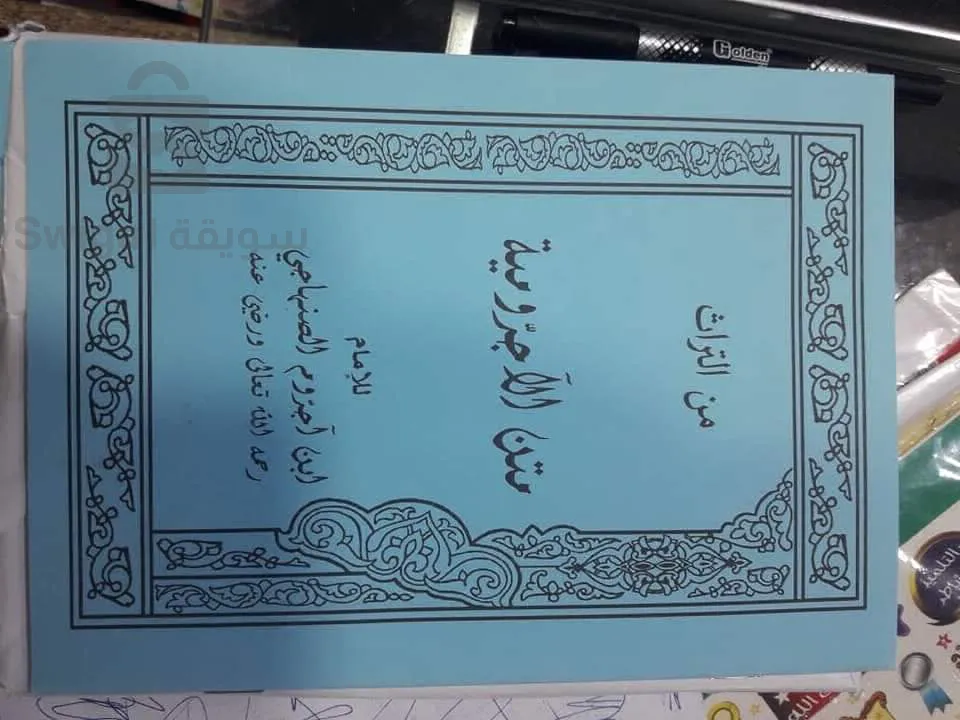 من التراث
متن الآجرّومية
للإمام
ابن آجرّوم الصنهاجي
رحمه الله تعالى ورضي عنه
Golden
سويقة